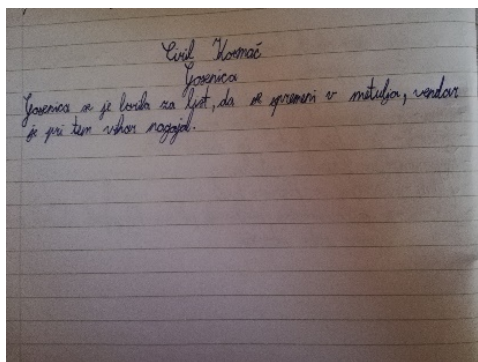 Ciril Kosmač
Gosenica
Gosenica se je borila za list, da se spremeni v metulja, vendar
je pri tem vihar nagajal.